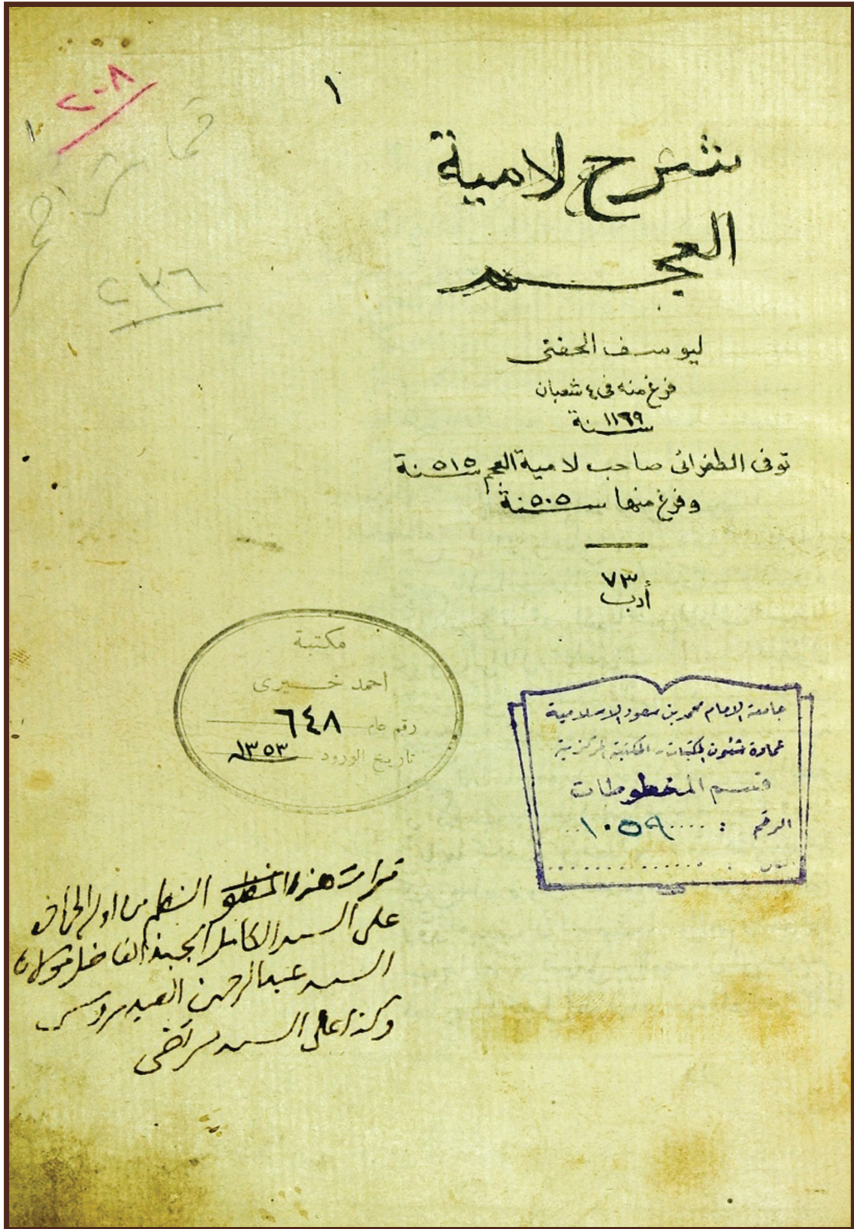 ١
٢٠٨
١
٢٣٦
شرح لامية
العجم
ليوسف الحفني
فرغ منه فى ٤ شعبان
سنة ١١٦٩
توفى الطغرائى صاحب لامية العجم سنة ٥١٥
وفرغ منها سنة ٥٠٥
٧٣
أدب
مكتبة
احمد خيرى
رقم عام ٦٤٨
تاريخ الورود ١٣٥٣
جامعة الامام محمد بن سعود الاسلامية
عمادة شئون المكتبات - المكتبة المركزية
قسم المخطوطات
الرقم : ١٠٥٩
قرأت هذه النظم من اوله الى اخره
على السيد الكامل الجهبذ الفاضل مولانا
السيد عبد الرحمن العيدروس
وكذا على السيد مرتضى